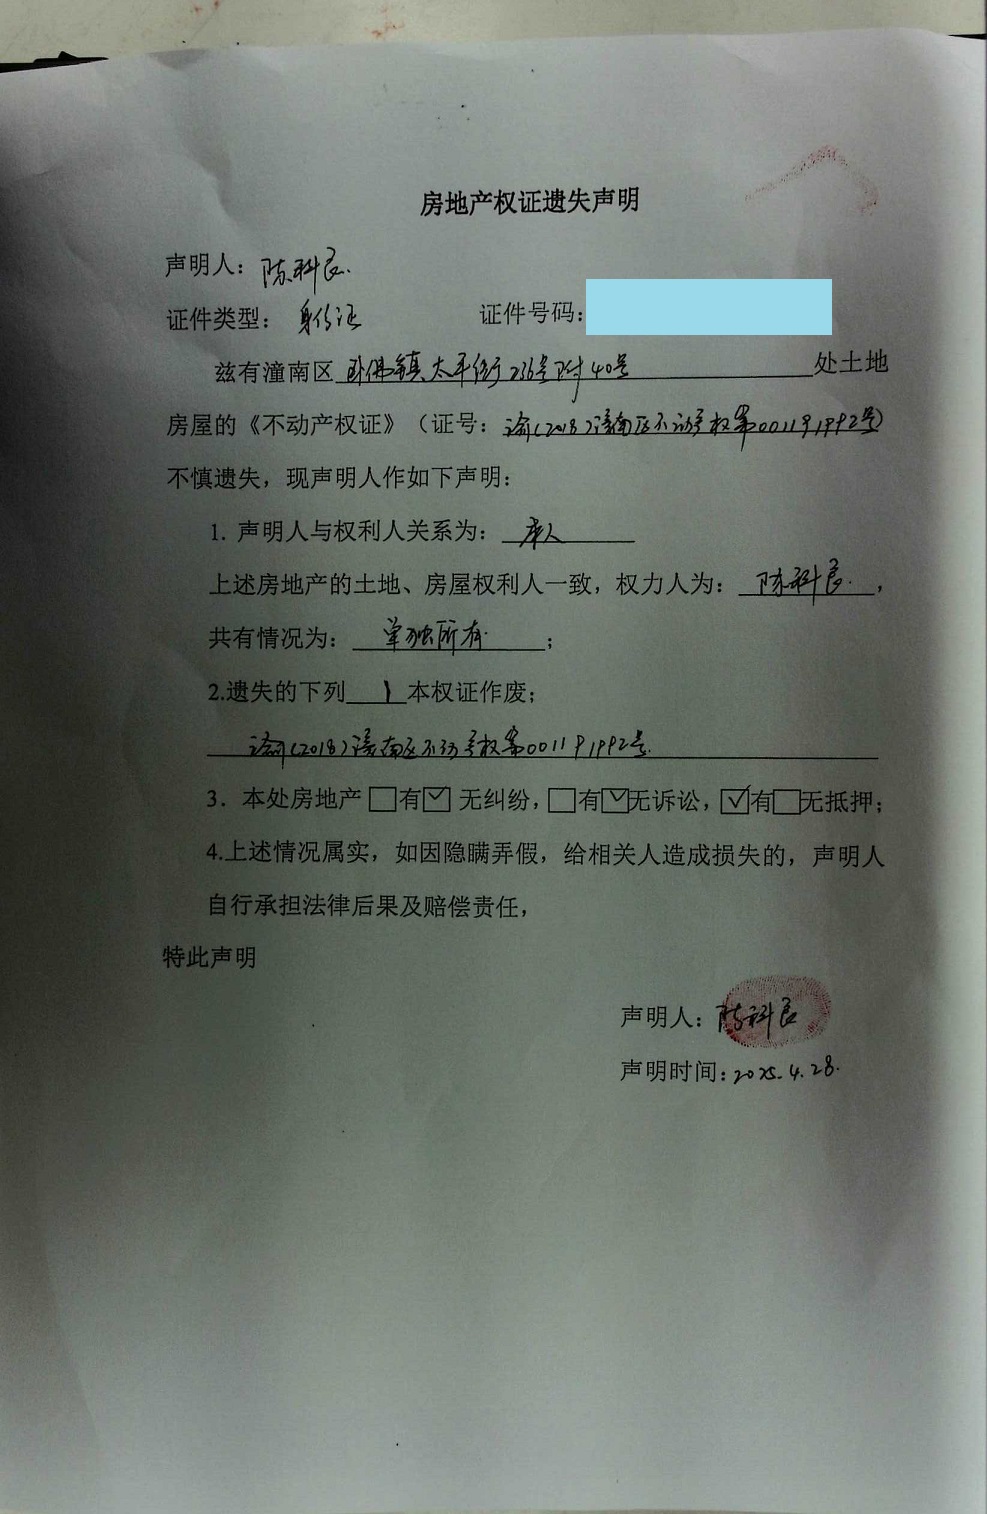 房地产权证遗失声明
声明人：陈科良.
证件类型： 身份证 证件号码：
兹有潼南区卧佛镇太平街236号附40号处土地
房屋的《不动产权证》（证号：渝(2018)潼南区不动产权第001191992号)
不慎遗失，现声明人作如下声明：
1. 声明人与权利人关系为：本人
上述房地产的土地、房屋权利人一致，权力人为：陈科良.，
共有情况为：单独所有；
2.遗失的下列1本权证作废；
渝(2018)潼南区不动产权第001191992号.
3．本处房地产□有☑无纠纷，□有☑无诉讼，☑有□无抵押；
4.上述情况属实，如因隐瞒弄假，给相关人造成损失的，声明人
自行承担法律后果及赔偿责任，
特此声明
声明人：陈科良
声明时间：2025.4.28.